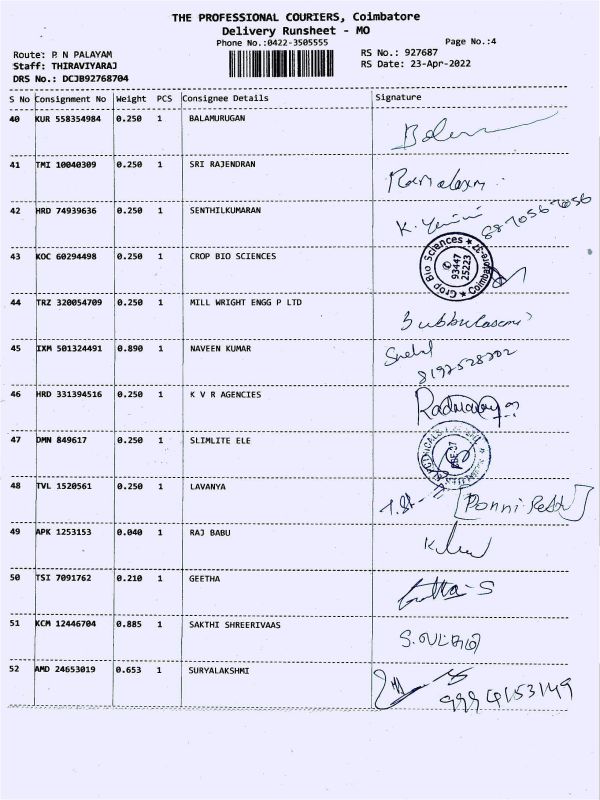 THE PROFESSIONAL COURIERS, Coimbatore
Delivery Runsheet - MO
Phone No.:0422-3505555
Page No.:4
Route: P N PALAYAM
RS No.: 927687
Staff: THIRAVIYARAJ
RS Date: 23-Apr-2022
DRS No.: DCJB92768704
S No Consignment No Weight PCS Consignee Details Signature
40 KUR 558354984 0.250 1 BALAMURUGAN
41 TMI 10040309 0.250 1 SRI RAJENDRAN
42 HRD 74939636 0.250 1 SENTHILKUMARAN K.
43 KOC 60294498 0.250 1 CROP BIO SCIENCES
Crop Bio Sciences * Coimbatore-37 *
93447
25223
44 TRZ 320054709 0.250 1 MILL WRIGHT ENGG P LTD
45 IXM 501324491 0.890 1 NAVEEN KUMAR
8192528202
46 HRD 331394516 0.250 1 K V R AGENCIES
47 DMN 849617 0.250 1 SLIMLITE ELE
48 TVL 1520561 0.250 1 LAVANYA
49 APK 1253153 0.040 1 RAJ BABU
50 TSI 7091762 0.210 1 GEETHA
51 KCM 12446704 0.885 1 SAKTHI SHREERIVAAS
52 AMD 24653019 0.653 1 SURYALAKSHMI